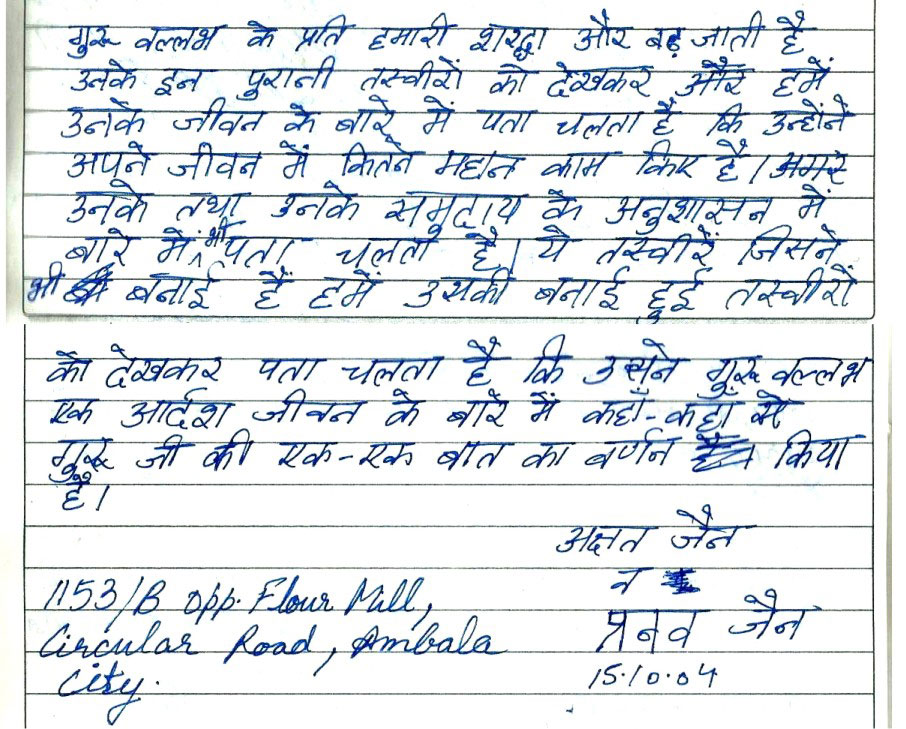 गुरू वल्लभ के प्रति हमारी शरद्धा और बढ़ जाती है
उनके इन पुरानी तस्वीरों को देखकर और हमें
उनके जीवन के बारे में पता चलता है कि उन्होंने
अपने जीवन में कितने महान काम किए है। अगर
उनके तथा उनके समुदाय के अनुशासन में
बारे में भी पता चलता है। ये तस्वीरें जिसने
भी बनाई हैं हमें उसकी बनाई हुई तस्वीरों
को देखकर पता चलता है कि उसने गुरू वल्लभ
एक आर्दश जीवन के बारे में कहाँ-कहाँ से
गुरू जी की एक-एक बात का वर्णन किया
है।
अक्षत जैन
व
प्रनव जैन
15.10.04
1153/B opp. Flour Mill,
Circular Road, Ambala
City.